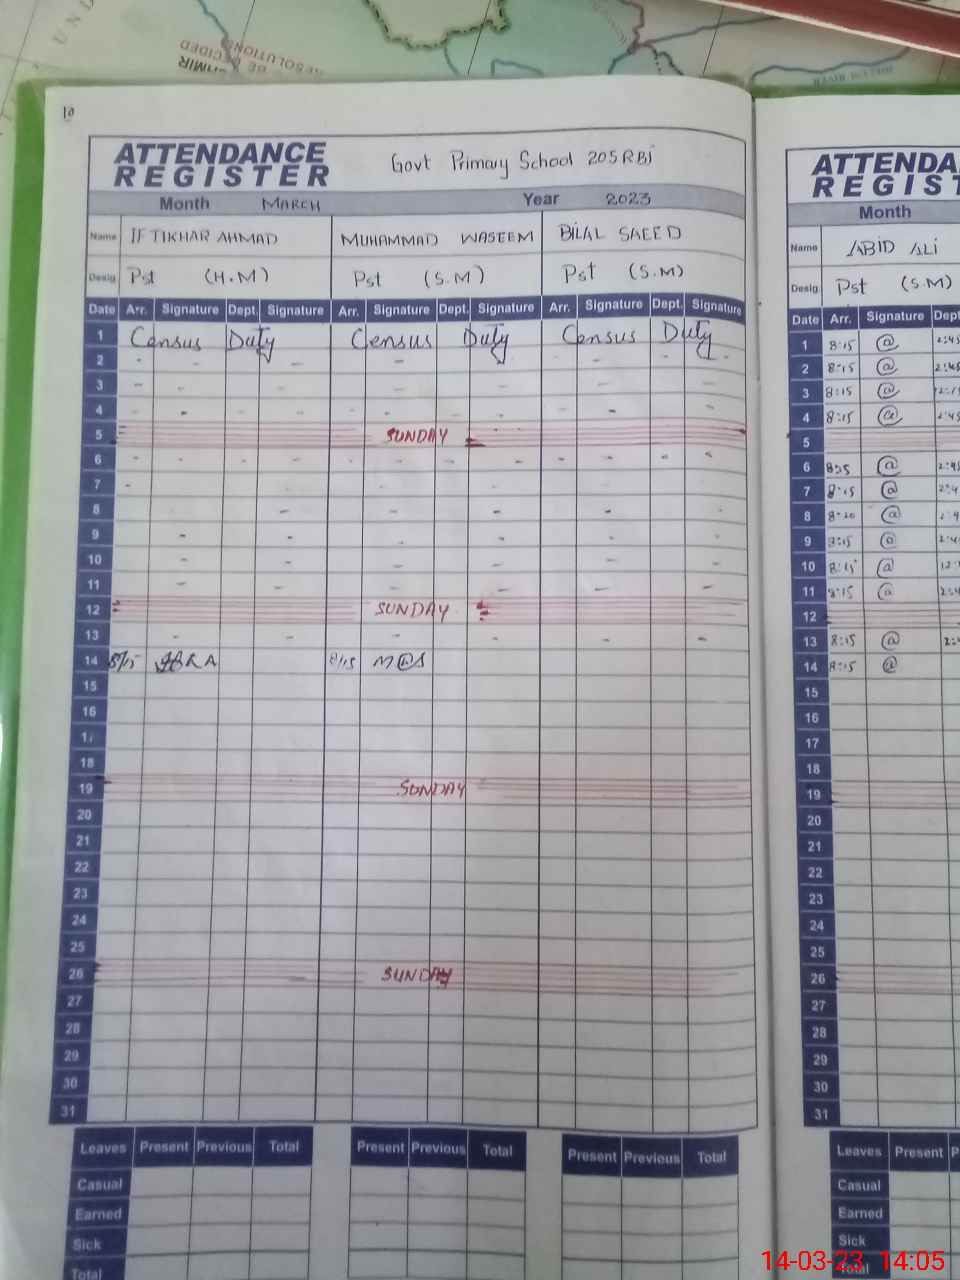 10
ATTENDANCE
REGISTER
Govt Primary School 205RBi
Month MARCH Year 2023
Name IFTIKHAR AHMAD MUHAMMAD WASEEM BILAL SAEED
Desig Pst (H.M) Pst (S.M) Pst (S.M)
Date Arr. Signature Dept. Signature Arr. Signature Dept. Signature Arr. Signature Dept. Signature
1 Census Duty Census Duty Census Duty
2 - - -
3 - - - -
4 - - - -
5 SUNDAY
6 - - - - - - - - - - -
7 - - - -
8 - - - -
9 - - - - - -
10 - - - - - -
11 - - - - - -
12 SUNDAY
13 - - - - - -
14 8/15 8/15
15
16
17
18
19 SUNDAY
20
21
22
23
24
25
26 SUNDAY
27
28
29
30
31
Leaves Present Previous Total Present Previous Total Present Previous Total
Casual
Earned
Sick
Total
ATTENDA
REGIST
Month
Name ABID ALI
Desig Pst (S.M)
Date Arr. Signature Dept
1 8:15 @ 2:45
2 8:15 @ 2:45
3 8:15 @
4 8:15 @ 2:45
5
6 @ 2:45
7 8:15 @ 2:4
8 8:20 @ 2:4
9 8:15 @ 2:4
10 8:15 @ 12:
11 8:15 @ 2:4
12
13 8:15 @ 2:
14 8:15 @
15
16
17
18
19
20
21
22
23
24
25
26
27
28
29
30
31
Leaves Present P
Casual
Earned
Sick
Total
14-03-23 14:05